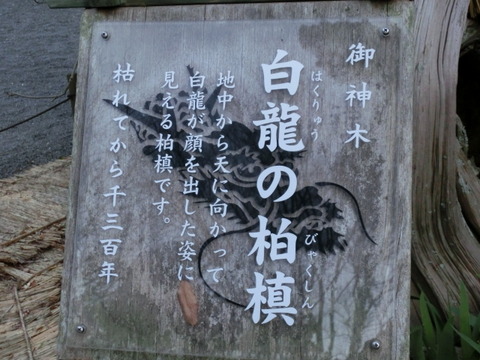 御神木
白龍の柏槙
はくりゅう
びゃくしん
地中から天に向かって
白龍が顔を出した姿に
見える柏槙です。
枯れてから千三百年